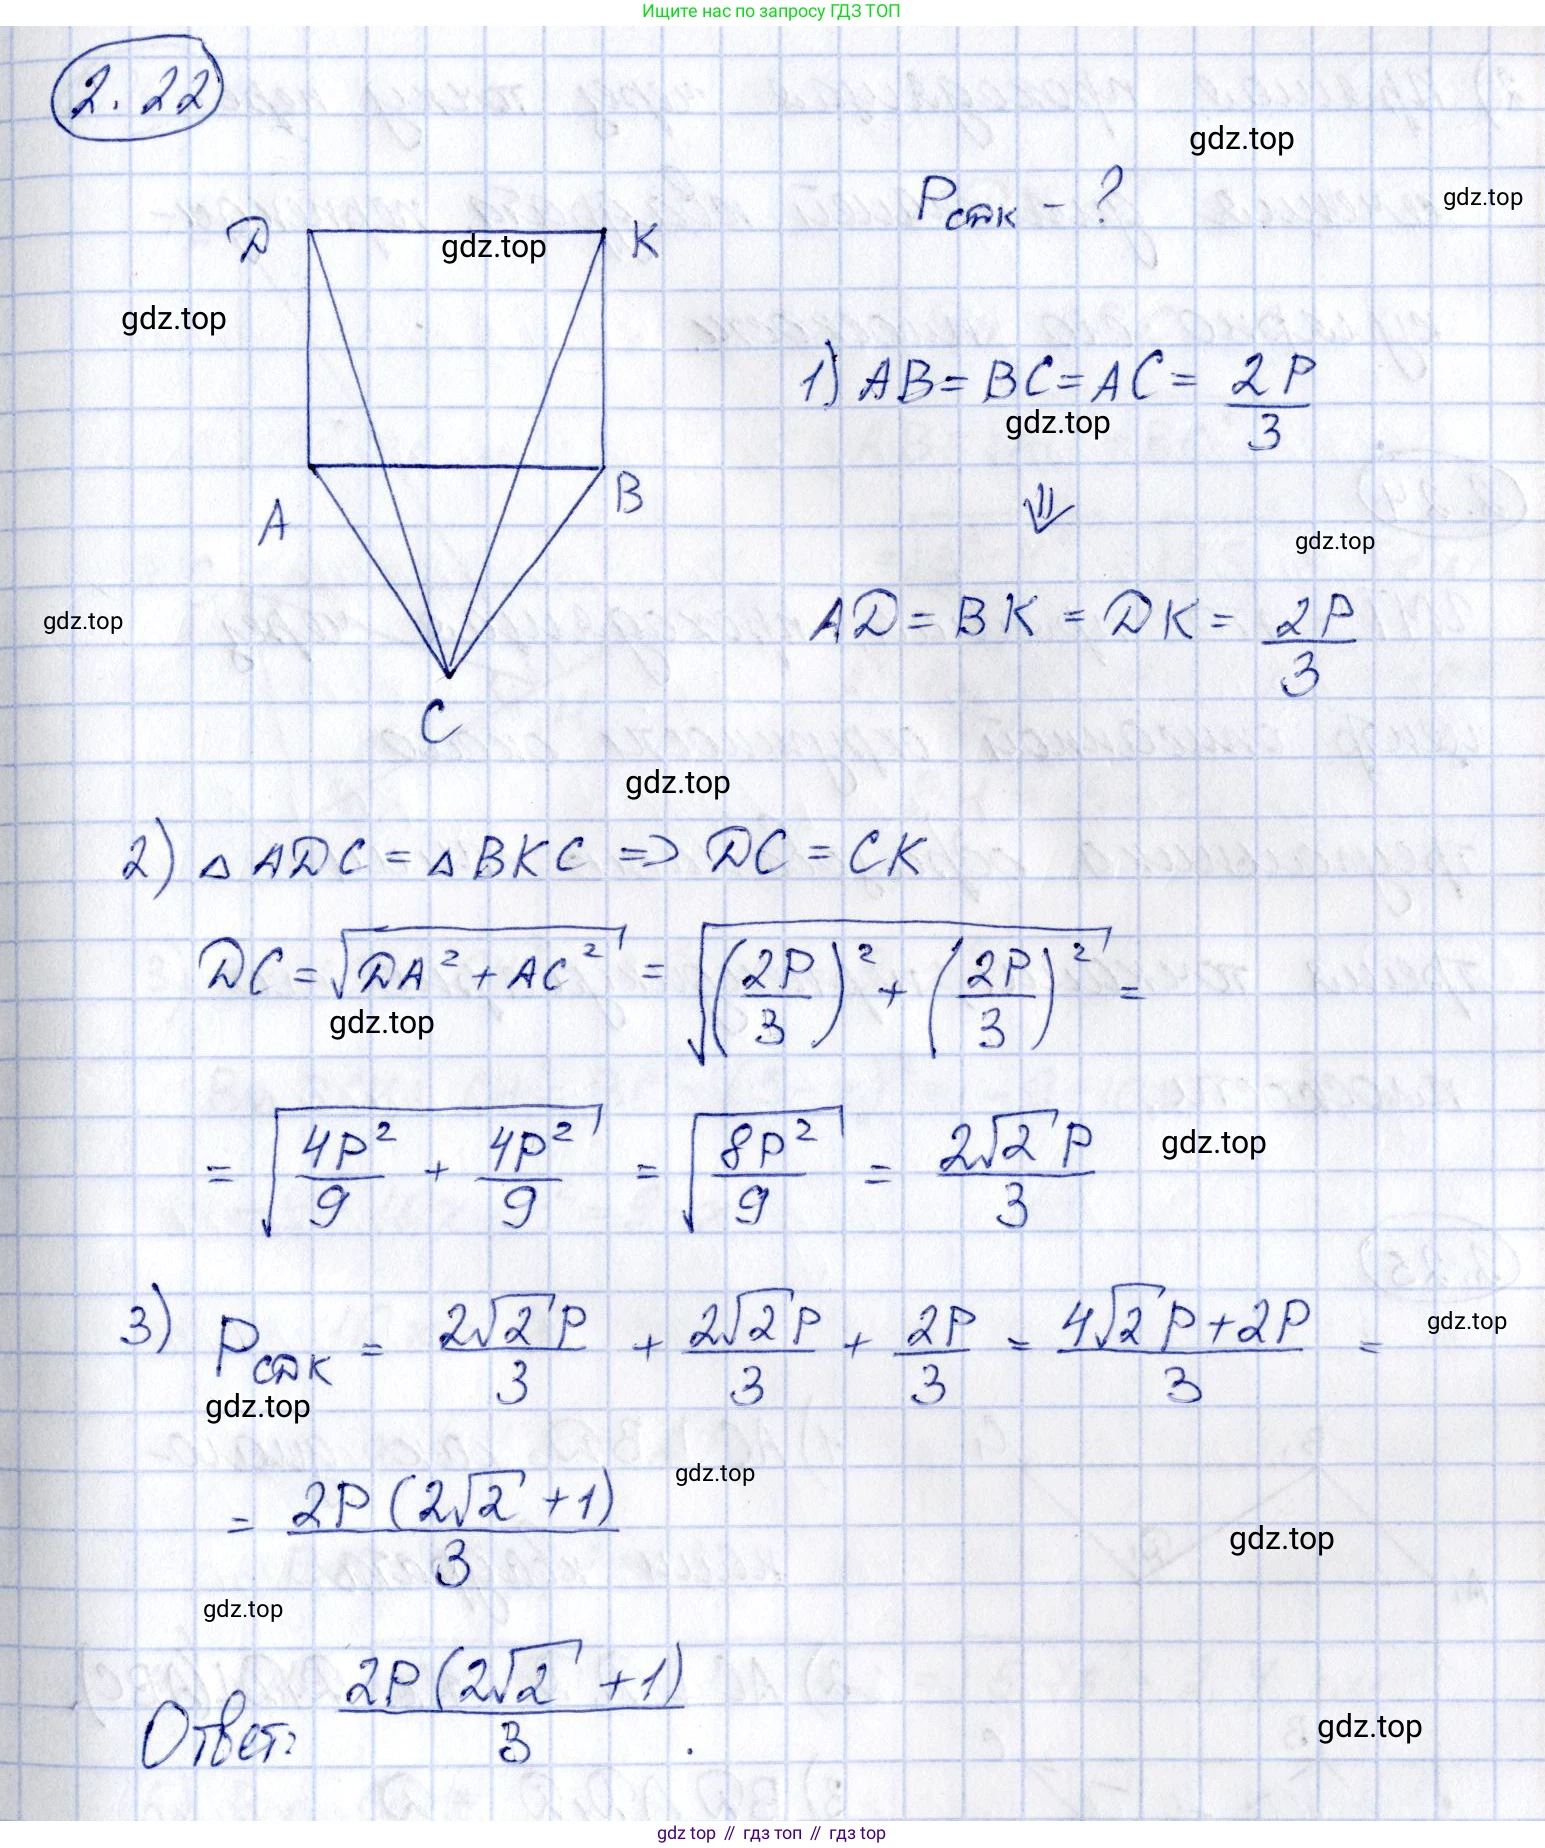 Ищите нас по запросу ГДЗ ТОП
2.22
gdz.top
P_CDK - ?
gdz.top
D gdz.top K
gdz.top
1) AB = BC = AC = 2P/3
gdz.top
⇓
A B
gdz.top
gdz.top
AD = BK = DK = 2P/3
C
gdz.top
2) △ ADC = △ BKC => DC = CK
DC = √(DA² + AC²) = √((2P/3)² + (2P/3)²) =
gdz.top
= √(4P²/9 + 4P²/9) = √(8P²/9) = 2√2 P/3
gdz.top
3) P_CDK = 2√2 P/3 + 2√2 P/3 + 2P/3 = (4√2 P + 2P)/3 =
gdz.top
gdz.top
gdz.top
= 2P(2√2 + 1)/3
gdz.top
gdz.top
Ответ: 2P(2√2 + 1)/3 .
gdz.top
gdz top // гдз топ // gdz top